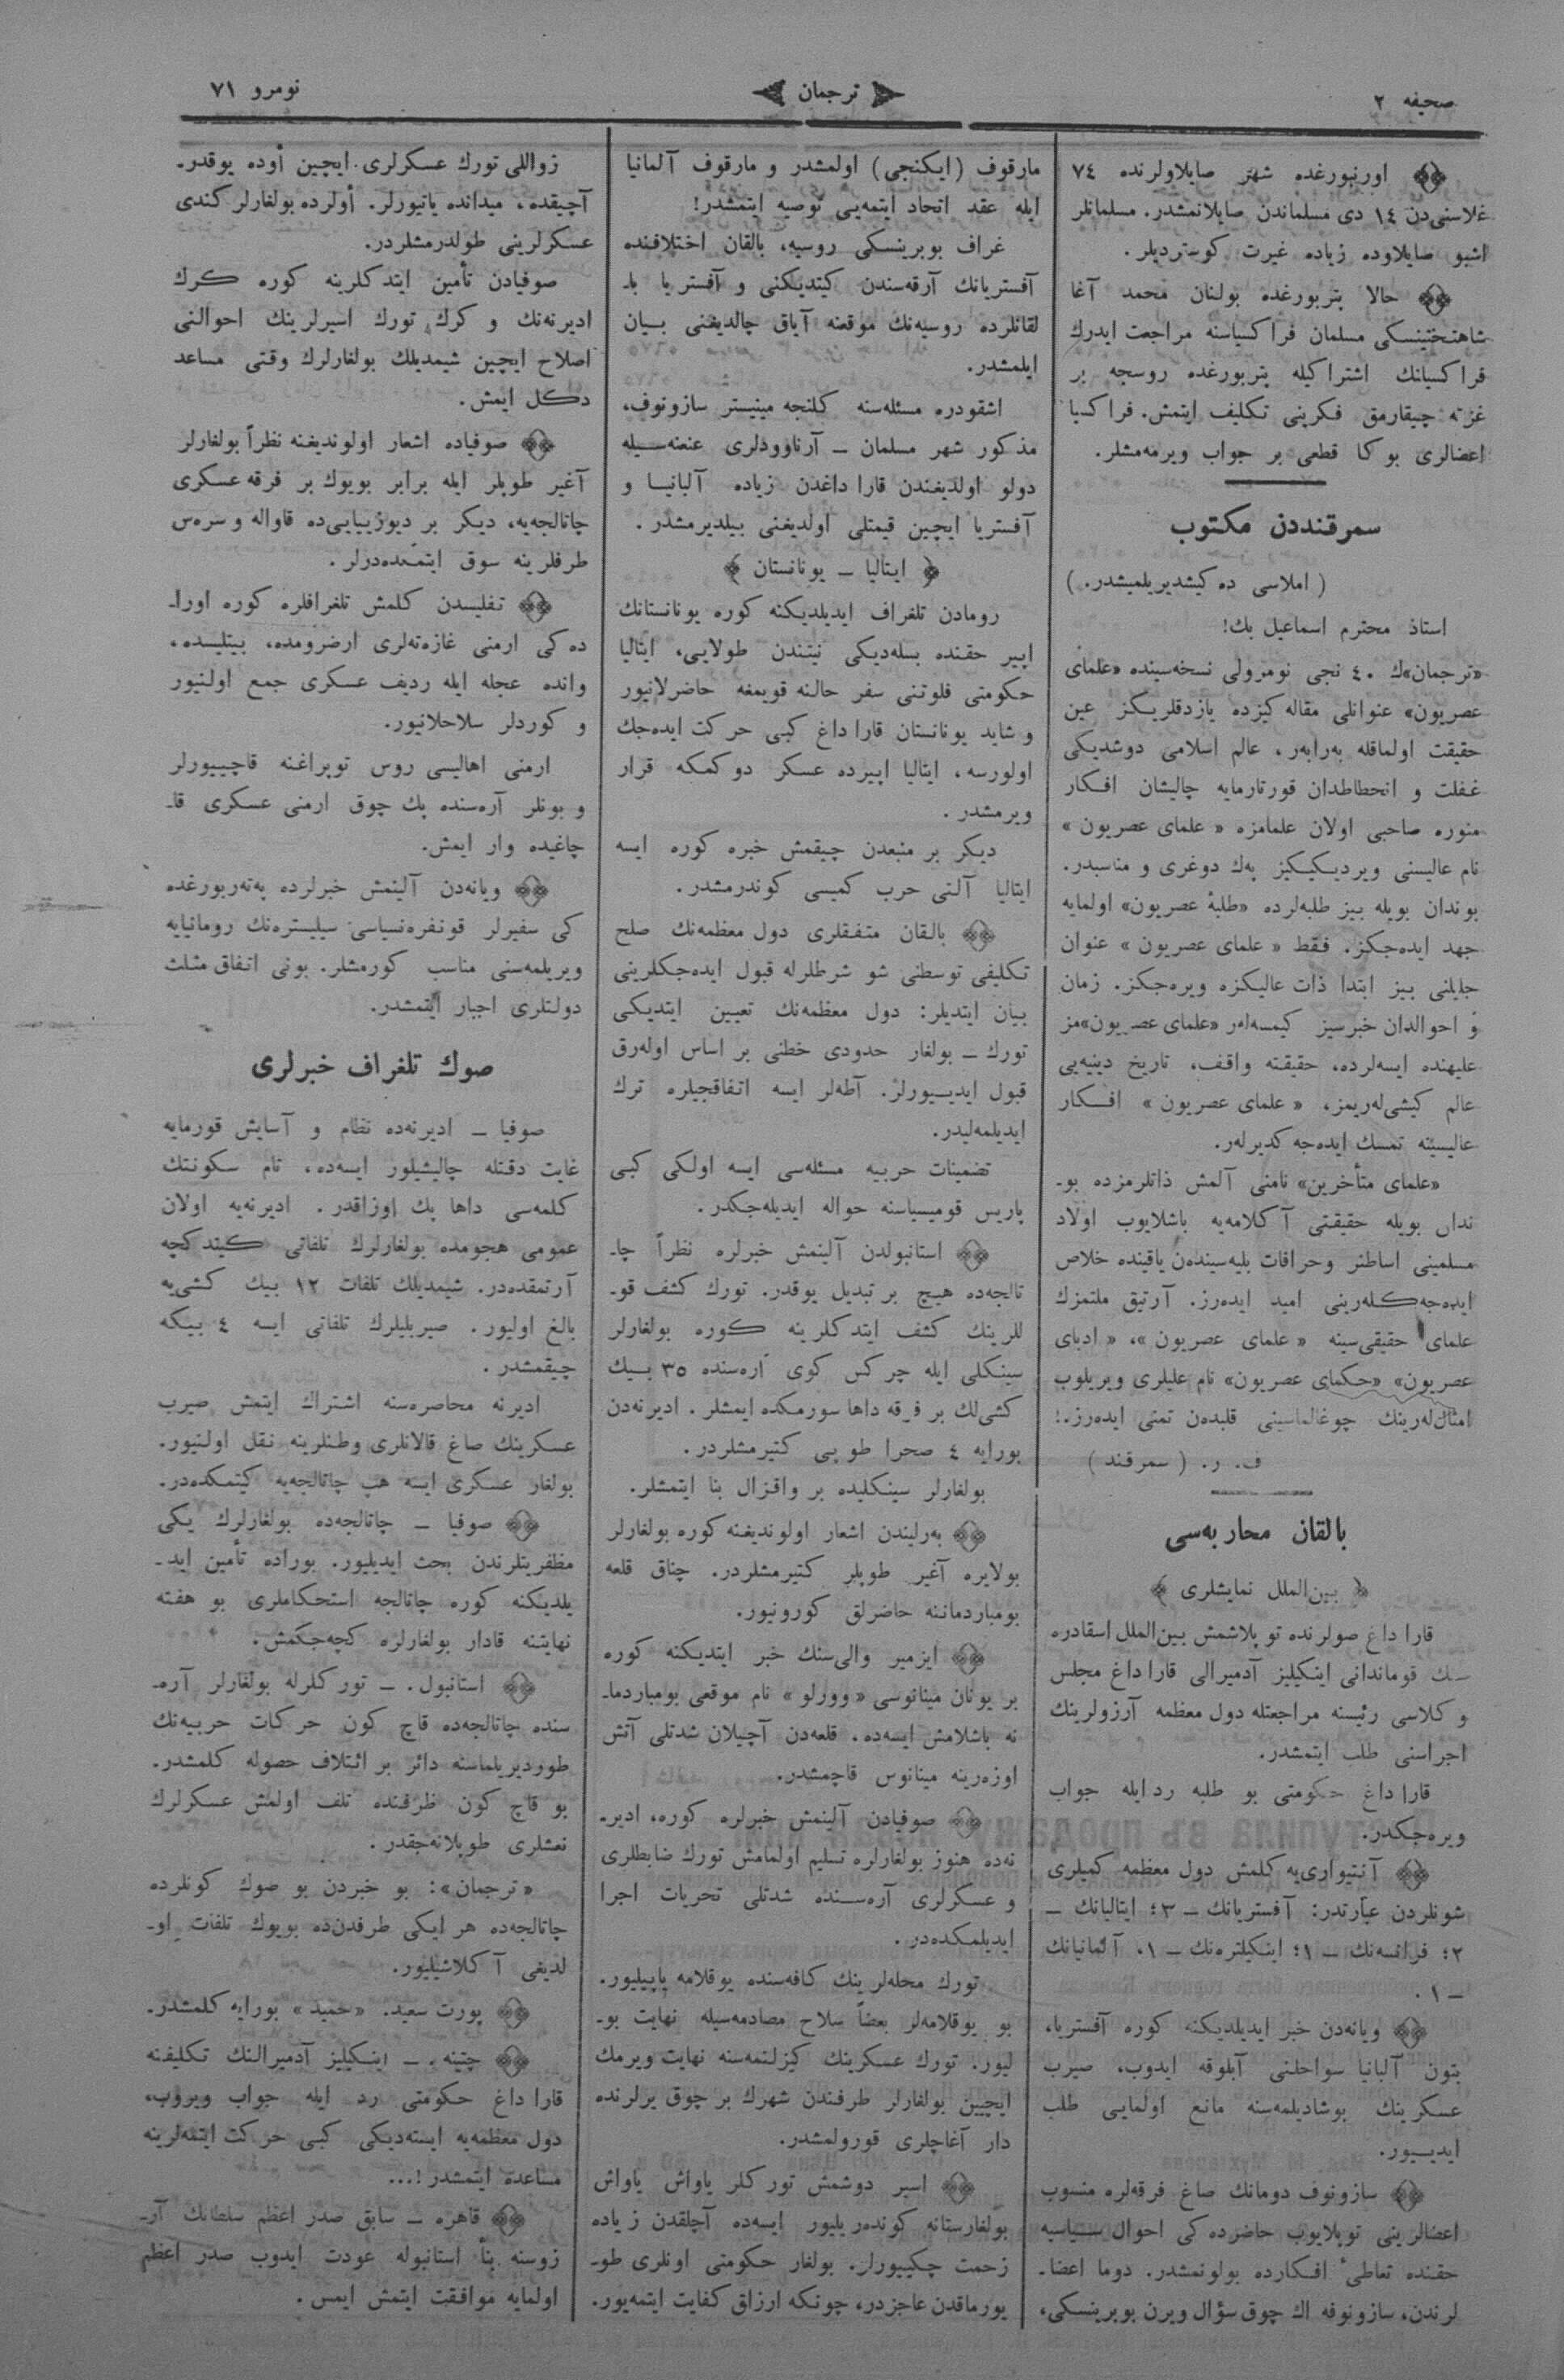 صحيفه ٢
ترجمان
نومرو ٧١
اورنبورغده شهر صايلاولرنده ٧٤
غلاسنى‌دن ١٤ دى مسلماندن صايلانمشدر. مسلمانلر
اشبو صايلاوده زياده غيرت كوسترديلر.
حالا پتربورغده بولنان محمد آغا
شاهتختينسكى مسلمان فراكسياسنه مراجعت ايدرك
فراكسيانك اشتراكيله پتربورغده روسجه بر
غزته چيقارمق فكرينى تكليف ايتمش. فراكسيا
اعضالرى بوكا قطعى بر جواب ويرمه‌مشلر.
سمرقنددن مكتوب
( املاسى ده كيشديريلميشدر. )
استاذ محترم اسماعيل بك!
«ترجمان»ك ٤٠ نجى نومرولى نسخه‌سينده «علماى
عصريون» عنوانلى مقاله‌كيزده يازدقلريكز عين
حقيقت اولماقله به‌رابه‌ر، عالم اسلامى دوشديكى
غفلت و انحطاطدان قورتارمايه چاليشان افكار
منوره صاحبى اولان علمامزه « علماى عصريون »
نام عاليسنى ويرديكيكيز په‌ك دوغرى و مناسبدر.
بوندان بويله بيز طلبه‌لرده «طلبهٔ عصريون» اولمايه
جهد ايده‌جكز. فقط « علماى عصريون » عنوان
جليلنى بيز ابتدا ذات عاليكزه ويره‌جكز. زمان
و احوالدان خبرسيز كيمسه‌لر «علماى عصريون»مز
عليهنده ايسه‌لرده، حقيقته واقف، تاريخ دينيه‌يى
عالم كيشى‌له‌ريمز، « علماى عصريون » افكار
عاليسينه تمسك ايده‌جه‌كديرله‌ر.
«علماى متأخرين» نامنى آلمش ذاتلرمزده بو-
ندان بويله حقيقتى آكلامه‌يه باشلايوب اولاد
مسلمينى اساطير وخرافات بليه‌سينده‌ن ياقينده خلاص
ايده‌جه‌كله‌رينى اميد ايده‌رز. آرتيق ملتمزك
علماى حقيقى‌سينه « علماى عصريون »، « ادباى
عصريون» «حكماى عصريون» نام عليلرى ويريلوب
امثال‌له‌رينك چوغالماسينى قلبده‌ن تمنى ايده‌رز.!
ف. ر. ( سمرقند )
بالقان محاربه‌سى
﴿ بين‌الملل نمايشلرى ﴾
قارا داغ صولرنده توپلاشمش بين‌الملل اسقادره
سك قوماندانى اينكيليز آدميرالى قارا داغ مجلس
وكلاسى رئيسنه مراجعتله دول معظمه آرزولرينك
اجراسنى طلب ايتمشدر.
قارا داغ حكومتى بو طلبه رد ايله جواب
ويره‌جكدر.
آنتيوارى‌يه كلمش دول معظمه كميلرى
شونلردن عبارتدر: آفستريانك – ٣؛ ايتاليانك –
٢؛ فرانسه‌نك – ١؛ اينكيلتره‌نك – ١، آلمانيانك
– ١ .
ويانه‌دن خبر ايديلديكنه كوره آفستريا،
بتون آلبانيا سواحلنى آبلوقه ايدوب، صيرب
عسكرينك بوشاديلمه‌سنه مانع اولمايى طلب
ايدييور.
سازونوف دومانك صاغ فرقه‌لره منسوب
اعضالرينى توپلايوب حاضرده‌كى احوال سياسيه
حقنده تعاطىٔ افكارده بولونمشدر. دوما اعضا-
لرندن، سازونوفه اك چوق سؤال ويرن بوبرينسكى،
مارقوف (ايكنجى) اولمشدر و مارقوف آلمانيا
ايله عقد اتحاد ايتمه‌يى توصيه ايتمشدر!
غراف بوبرينسكى روسيه، بالقان اختلافنده
آفستريانك آرقه‌سندن كيتديكنى و آفستريا با-
لقانلرده روسيه‌نك موقعنه آياق چالديغنى بيان
ايلمشدر.
اشقودره مسئله‌سنه كلنجه مينيستر سازونوف،
مذكور شهر مسلمان – آرناوودلرى عنعنه‌سيله
دولو اولديغندن قارا داغدن زياده آلبانيا و
آفستريا ايچين قيمتلى اولديغنى بيلديرمشدر.
﴿ ايتاليا – يونانستان ﴾
رومادن تلغراف ايديلديكنه كوره يونانستانك
اپير حقنده بسله‌ديكى نيتندن طولايى، ايتاليا
حكومتى فلوتنى سفر حالنه قويمغه حاضرلانيور
و شايد يونانستان قارا داغ كبى حركت ايده‌جك
اولورسه، ايتاليا اپيرده عسكر دوكمكه قرار
ويرمشدر.
ديكر بر منبعدن چيقمش خبره كوره ايسه
ايتاليا آلتى حرب كميسى كوندرمشدر.
بالقان متفقلرى دول معظمه‌نك صلح
تكليفى توسطنى شو شرطلرله قبول ايده‌جكلرينى
بيان ايتديلر: دول معظمه‌نك تعيين ايتديكى
تورك – بولغار حدودى خطنى بر اساس اوله‌رق
قبول ايدييورلر. آطه‌لر ايسه اتفاقجيلره ترك
ايديلمه‌ليدر.
تضمينات حربيه مسئله‌سى ايسه اولكى كبى
پاريس قوميسياسنه حواله ايديله‌جكدر.
استانبولدن آلينمش خبرلره نظراً چا-
تالجه‌ده هيچ بر تبديل يوقدر. تورك كشف قو-
للرينك كشف ايتدكلرينه كوره بولغارلر
سينكلى ايله چركس كوى آره‌سنده ٣٥ بيك
كشى‌لك بر فرقه داها سورمكده ايمشلر. ادير‌نه‌دن
بورايه ٤ صحرا طوپى كتيرمشلردر.
بولغارلر سينكليده بر واقزال بنا ايتمشلر.
به‌رليندن اشعار اولونديغنه كوره بولغارلر
بولايره آغير طوپلر كتيرمشلردر. چناق قلعه
بومباردماننه حاضرلق كورونيور.
ايزمير والى‌سنك خبر ايتديكنه كوره
بر يونان مينانوسى « وورلو » نام موقعى بومباردما-
نه باشلامش ايسه‌ده. قلعه‌دن آچيلان شدتلى آتش
اوزه‌رينه مينانوس قاچمشدر.
صوفيادن آلينمش خبرلره كوره، ادير-
نه‌ده هنوز بولغارلره تسليم اولمامش تورك ضابطلرى
و عسكرلرى آره‌سنده شدتلى تحريات اجرا
ايديلمكده‌در.
تورك محله‌لرينك كافه‌سنده يوقلامه ياپيليور.
بو يوقلامه‌لر بعضاً سلاح مصادمه‌سيله نهايت بو-
ليور. تورك عسكرينك كيزلنمه‌سنه نهايت ويرمك
ايچيين بولغارلر طرفندن شهرك بر چوق يرلرنده
دار آغاچلرى قورولمشدر.
اسير دوشمش توركلر ياواش ياواش
بولغارستانه كونده‌ريليور ايسه‌ده آچلقدن زياده
زحمت چكييورلر. بولغار حكومتى اونلرى طو-
يورماقدن عاجزدر، چونكه ارزاق كفايت ايتمه‌يور.
زواللى تورك عسكرلرى ايچين أوده يوقدر-
آچيقده، ميدانده ياتيورلر. أولرده بولغارلر كندى
عسكرلرينى طولدرمشلردر.
صوفيادن تأمين ايتدكلرينه كوره كرك
اديرنه‌نك و كرك تورك اسيرلرينك احوالنى
اصلاح ايچين شيمديلك بولغارلرك وقتى مساعد
دكل ايمش.
صوفياده اشعار اولونديغنه نظراً بولغارلر
آغير طوپلر ايله برابر بويوك بر فرقه عسكرى
چاتالجه‌يه، ديكر بر ديوزييايى‌ده قاواله و سره‌س
طرفلرينه سوق ايتمكده‌درلر.
تفليسدن كلمش تلغرافلره كوره اورا-
ده‌كى ارمنى غازه‌ته‌لرى ارضرومده، بيتليسده،
وانده عجله ايله رديف عسكرى جمع اولنيور
و كوردلر سلاحلانيور.
ارمنى اهاليسى روس توپراغنه قاچييورلر
و بونلر آره‌سنده پك چوق ارمنى عسكرى قا-
چاغيده وار ايمش.
ويانه‌دن آلينمش خبرلرده په‌ته‌ربورغده
كى سفيرلر قونفره‌نسياسى سيليستره‌نك رومانيايه
ويريلمه‌سنى مناسب كورمشلر. بونى اتفاق مثلث
دولتلرى اجبار ايتمشدر.
صوك تلغراف خبرلرى
صوفيا – اديرنه‌ده نظام و آسايش قورمايه
غايت دقتله چاليشيلور ايسه‌ده، تام سكونتك
كلمه‌سى داها پك اوزاقدر. اديرنه‌يه اولان
عمومى هجومده بولغارلرك تلفاتى كيتدكچه
آرتمقده‌در. شيمديلك تلفات ١٢ بيك كشى‌يه
بالغ اوليور. صيربليلرك تلفاتى ايسه ٤ بيكه
چيقمشدر.
اديرنه محاصره‌سنه اشتراك ايتمش صيرب
عسكرينك صاغ قالانلرى وطنلرينه نقل اولنيور.
بولغار عسكرى ايسه هپ چاتالجه‌يه كيتمكده‌در.
صوفيا – چاتالجه‌ده بولغارلرك يكى
مظفريتلرندن بحث ايديليور. بوراده تأمين ايد-
يلديكنه كوره چاتالجه استحكاملرى بو هفته
نهايتنه قادار بولغارلره كچه‌جكمش.
استانبول. – توركلرله بولغارلر آره-
سنده چاتالجه‌ده قاچ كون حركات حربيه‌نك
طوورديريلماسنه دائر بر ائتلاف حصوله كلمشدر.
بو قاچ كون ظرفنده تلف اولمش عسكرلرك
نعشلرى طوپلانه‌جقدر.
«ترجمان»: بو خبردن بو صوك كونلرده
چاتالجه‌ده هر ايكى طرفدن‌ده بويوك تلفات او-
لديغى آكلاشيليور.
پورت سعيد. «حميد» بورايه كلمشدر.
چتينه. – اينكيليز آدميرالنك تكليفنه
قارا داغ حكومتى رد ايله جواب ويروب،
دول معظمه‌يه ايسته‌ديكى كبى حركت ايتمه‌لرينه
مساعده ايتمشدر!...
قاهره – سابق صدر اعظم سلطانك آر-
زوسنه بنأ استانبوله عودت ايدوب صدر اعظم
اولمايه موافقت ايتمش ايمس.